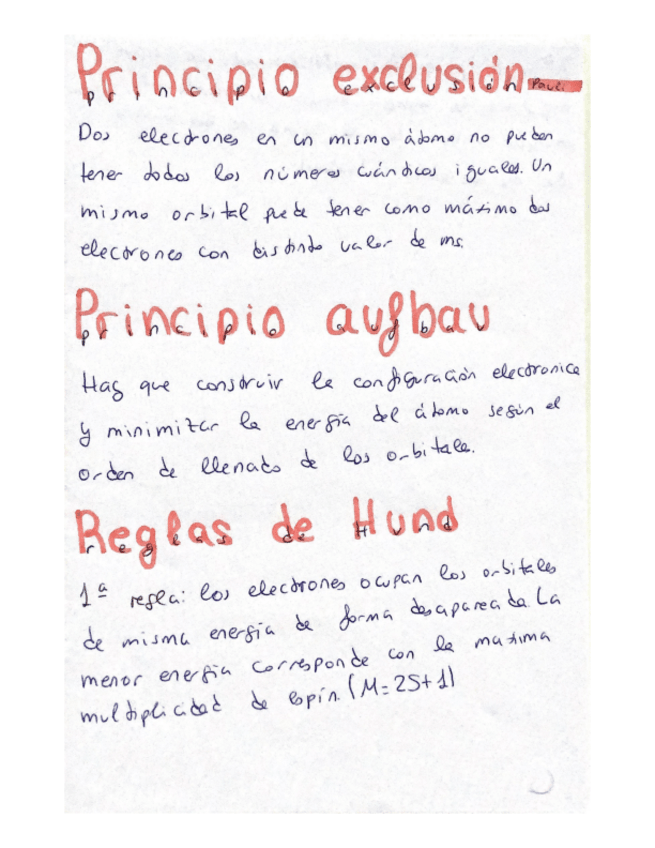 Principio exclusión Pauli
Dos electrones en un mismo átomo no pueden
tener todos los números cuánticos iguales. Un
mismo orbital puede tener como máximo dos
electrones con distinto valor de ms.
Principio aufbau
Hay que construir la configuración electronica
y minimizar la energía del átomo según el
orden de llenado de los orbitale.
Reglas de Hund
1ª regla: los electrones ocupan los orbitales
de misma energia de forma desapareada. La
menor energia corresponde con la maxima
multiplicidad de espín. (M=2S+1)